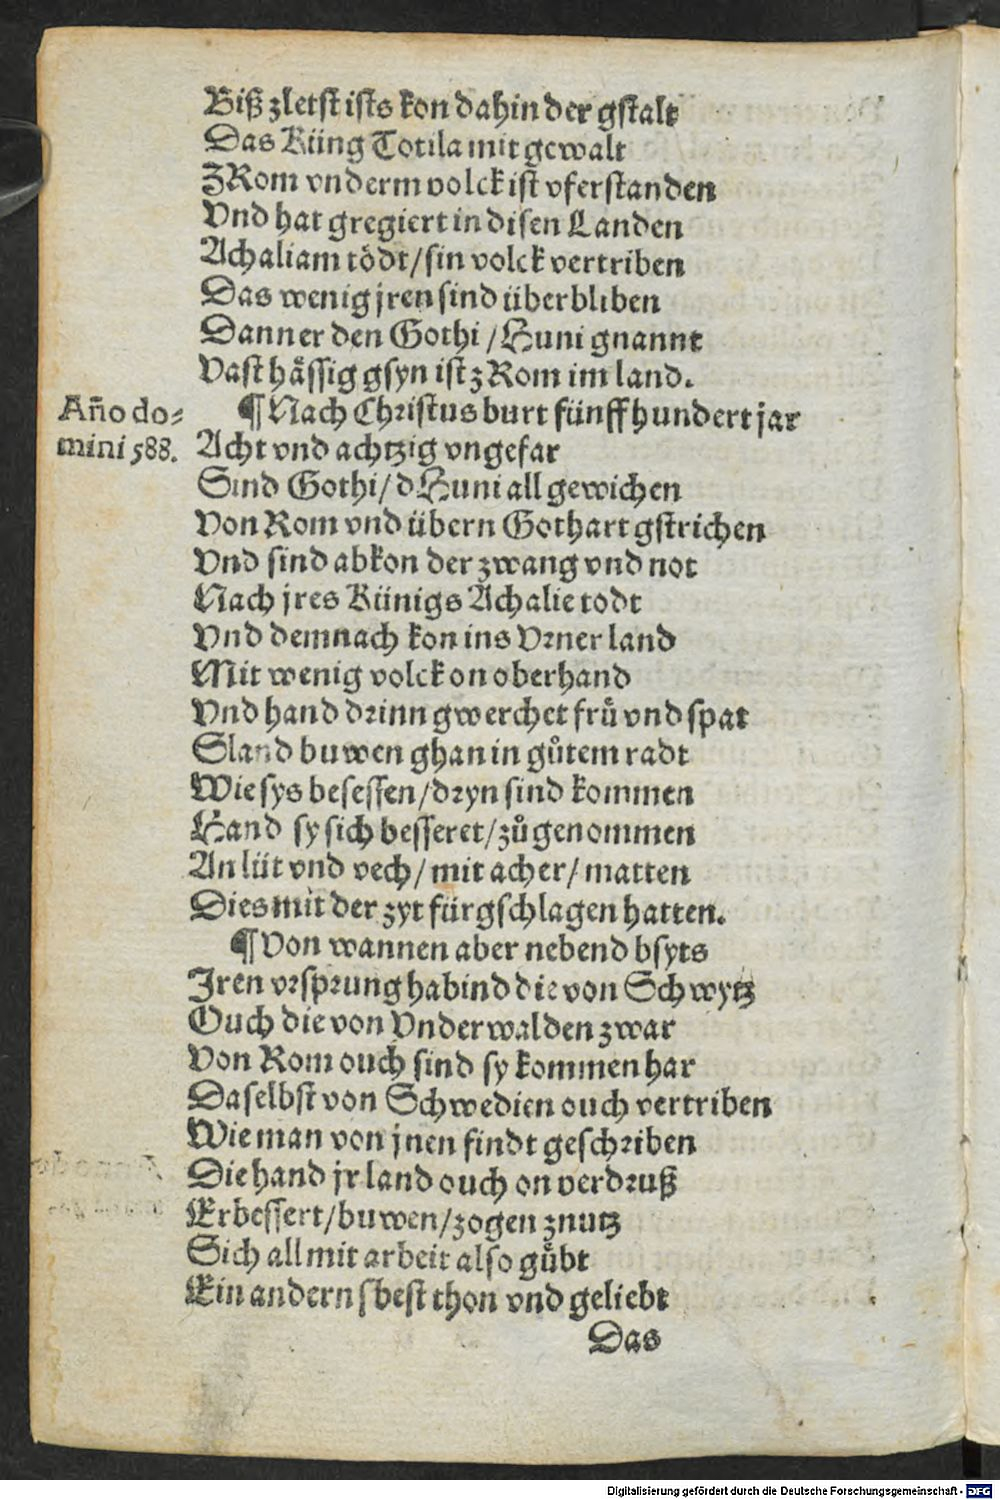 Biß zletst ists kon dahin der gstalt
Das Küng Totila mit gewalt
ZRom vnderm volck ist vferstanden
Vnd hat gregiert in disen Landen
Achaliam tödt/ sin volck vertriben
Das wenig jren sind überbliben
Dann er den Gothi / Huni gnannt
Vast hässig gsyn ist zRom im land.
Año do-
mini 588.
¶ Nach Christus burt fünff hundert jar
Acht vnd achtzig vngefar
Sind Gothi/ d Huni all gewichen
Von Rom vnd übern Gothart gstrichen
Vnd sind abkon der zwang vnd not
Nach jres Künigs Achalie todt
Vnd demnach kon ins Vrner land
Mit wenig volck on oberhand
Vnd hand drinn gwerchet frü vnd spat
Sland buwen ghan in gůtem radt
Wie sys besessen/ dryn sind kommen
Hand sy sich besseret/ zůgenommen
An lüt vnd vech/ mit acher/ matten
Dies mit der zyt fürgschlagen hatten.
¶ Von wannen aber nebend bsyts
Jren vrsprung habind die von Schwytz
Ouch die von Vnderwalden zwar
Von Rom ouch sind sy kommen har
Daselbst von Schwedien ouch vertriben
Wie man von jnen findt geschriben
Die hand jr land ouch on verdruß
Erbessert/ buwen/ zogen znutz
Sich all mit arbeit also gübt
Ein andern sbest thon vnd geliebt
Das
Digitalisierung gefördert durch die Deutsche Forschungsgemeinschaft - DFG